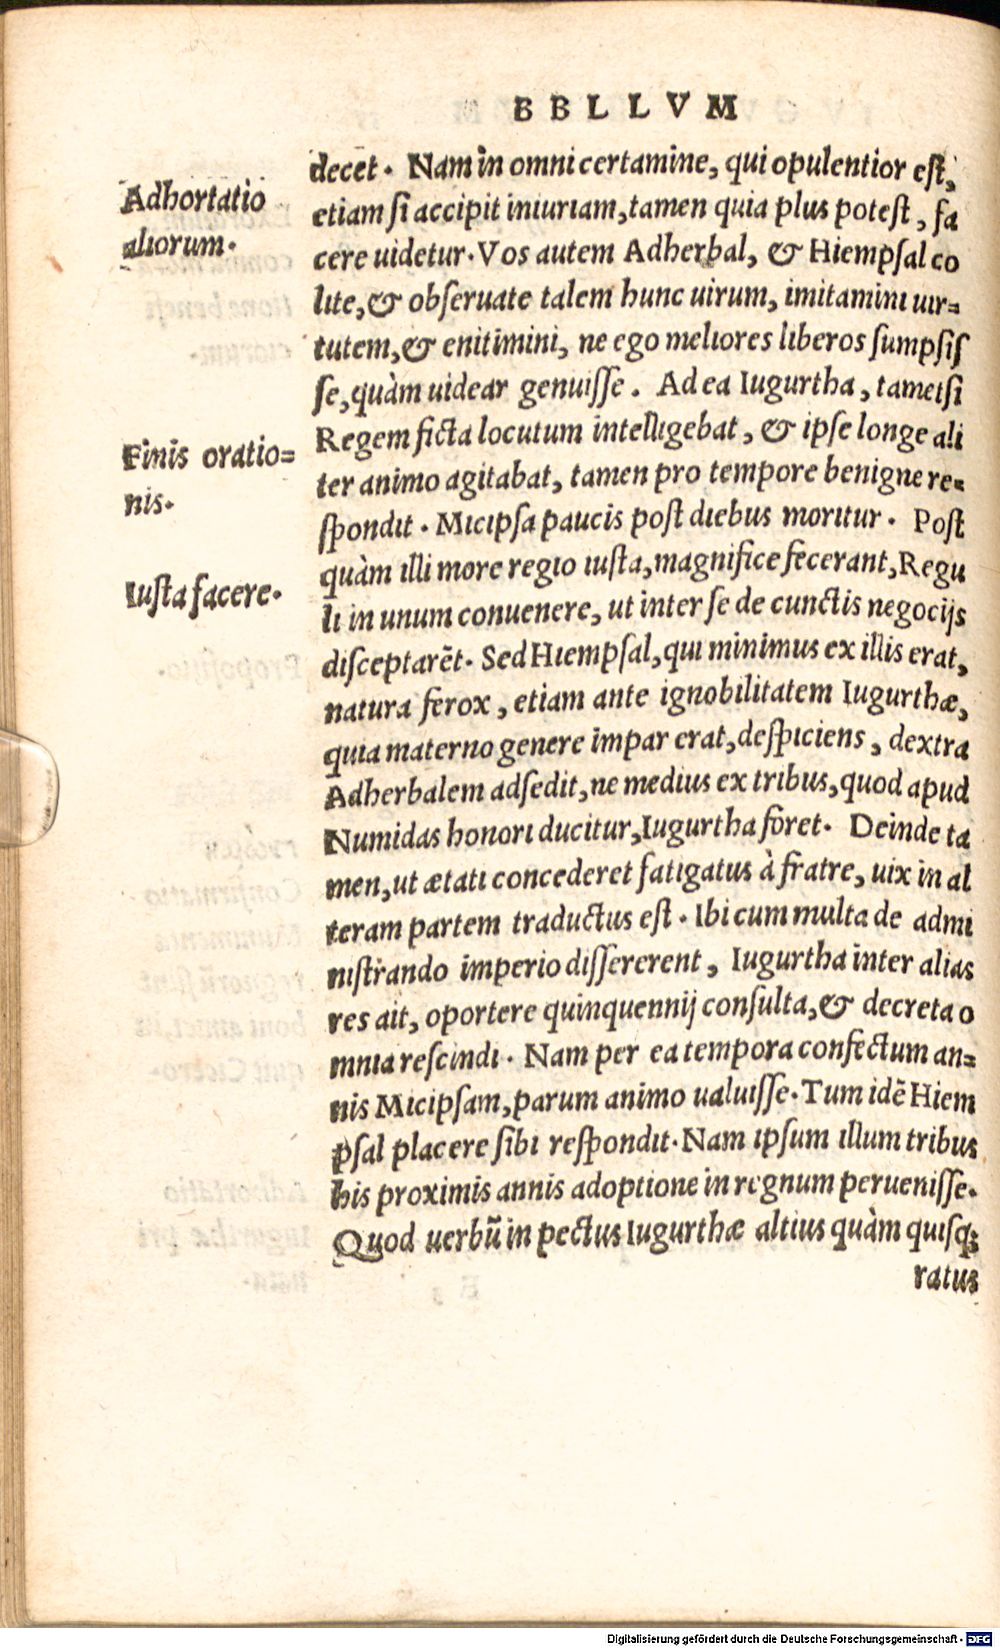 BBLLVM
decet. Nam in omni certamine, qui opulentior eſt,
Adhortatio
aliorum.
etiam ſi accipit iniuriam, tamen quia plus poteſt, fa
cere uidetur. Vos autem Adherbal, & Hiempſal co
lite, & obſeruate talem hunc uirum, imitamini uir=
tutem, & enitimini, ne ego meliores liberos ſumpſiſ
ſe, quàm uidear genuiſſe. Ad ea Iugurtha, tametſi
Regem ficta locutum intelligebat, & ipſe longe ali
Finis oratio=
nis.
ter animo agitabat, tamen pro tempore benigne re=
ſpondit. Micipſa paucis poſt diebus moritur. Poſt
quàm illi more regio iuſta, magnifice fecerant, Regu
Iuſta facere.
li in unum conuenere, ut inter ſe de cunctis negocijs
diſceptarẽt. Sed Hiempſal, qui minimus ex illis erat,
natura ferox, etiam ante ignobilitatem Iugurthæ,
quia materno genere impar erat, deſpiciens, dextra
Adherbalem adſedit, ne medius ex tribus, quod apud
Numidas honori ducitur, Iugurtha foret. Deinde ta
men, ut ætati concederet fatigatus à fratre, uix in al
teram partem traductus eſt. Ibi cum multa de admi
niſtrando imperio diſſererent, Iugurtha inter alias
res ait, oportere quinquennij conſulta, & decreta o
mnia reſcindi. Nam per ea tempora confectum an=
nis Micipſam, parum animo ualuiſſe. Tum idẽ Hiem
pſal placere ſibi reſpondit. Nam ipſum illum tribus
his proximis annis adoptione in regnum perueniſſe.
Quod uerbũ in pectus Iugurthæ altius quàm quiſq;
ratus
Digitalisierung gefördert durch die Deutsche Forschungsgemeinschaft - DFG